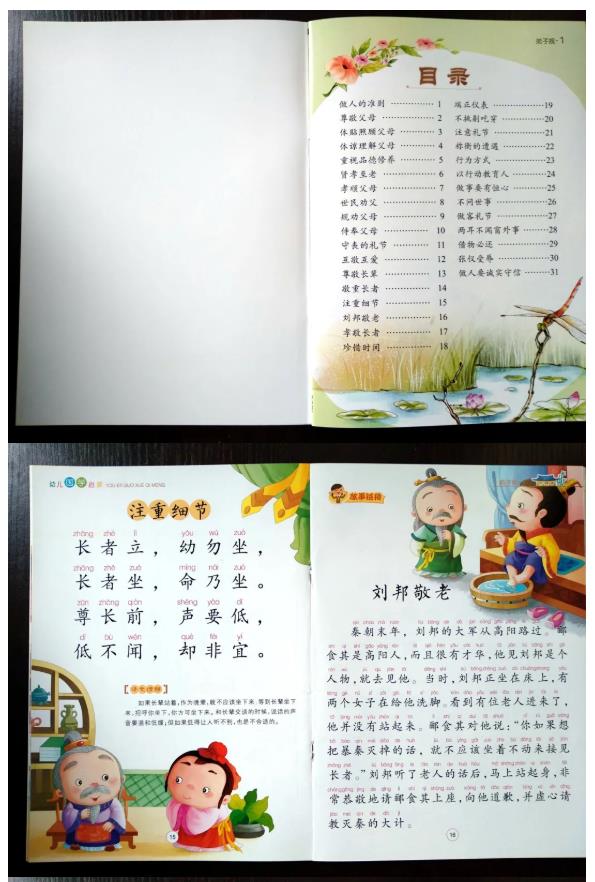 弟子规·1
目录
做人的准则 ………… 1
尊敬父母 ………… 2
体贴照顾父母 ………… 3
体谅理解父母 ………… 4
重视品德修养 ………… 5
贤孝至老 ………… 6
孝顺父母 ………… 7
世民劝父 ………… 8
规劝父母 ………… 9
侍奉父母 ………… 10
守丧的礼节 ………… 11
互敬互爱 ………… 12
尊敬长辈 ………… 13
敬重长者 ………… 14
注重细节 ………… 15
刘邦敬老 ………… 16
孝敬长者 ………… 17
珍惜时间 ………… 18
端正仪表 ………… 19
不挑剔吃穿 ………… 20
注意礼节 ………… 21
祢衡的遭遇 ………… 22
行为方式 ………… 23
以行动教育人 ………… 24
做事要有恒心 ………… 25
不问世事 ………… 26
做客礼节 ………… 27
两耳不闻窗外事 ………… 28
借物必还 ………… 29
张仪受辱 ………… 30
做人要诚实守信 ………… 31
幼儿国学启蒙 YOU ER GUO XUE QI MENG
注重细节
zhǎng zhě lì yòu wù zuò
长者立，幼勿坐，
zhǎng zhě zuò mìng nǎi zuò
长者坐，命乃坐。
zūn zhǎng qián shēng yào dī
尊长前，声要低，
dī bù wén què fēi yí
低不闻，却非宜。
如果长辈站着，作为晚辈，就不应该坐下，等到长辈坐下来，招呼你坐下，你方可坐下来。和长辈交谈的时候，说话的声音要温和低缓，但如果低得让人听不到，也是不合适的。
15
故事链接
刘邦敬老
秦朝末年，刘邦的大军从高阳路过。郦
食其是高阳人，而且很有才华，他见刘邦是个
人物，就去见他。当时，刘邦正坐在床上，有
两个女子在给他洗脚。看到有位老人进来了，
他并没有站起来。郦食其对他说：“你如果想
把暴秦灭掉的话，就不应该坐着不动来接见
长者。”刘邦听了老人的话后，马上站起身，非
常恭敬地请郦食其上座，向他道歉，并虚心请
教灭秦的大计。
16